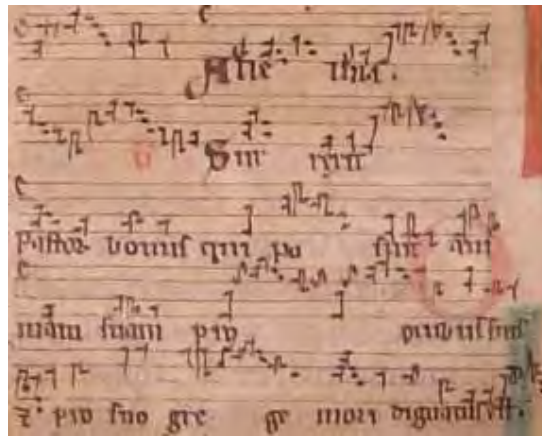 Alle luia.
V Sur rexit
pastor bonus qui po suit ani
mam suam pro ovibus suis
⁊ pro suo gre ge mori dignatus est.